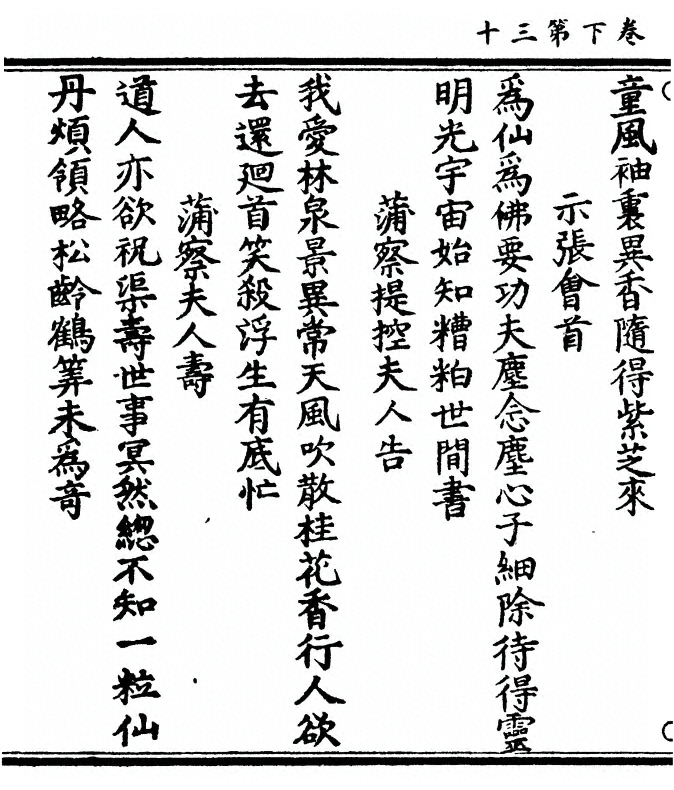 卷下第三十
童風袖裏異香隨得紫芝來
示張會首
爲仙爲佛要功夫塵念塵心子細除待得靈
明光宇宙始知糟粕世間書
蒲察提控夫人告
我愛林泉景異常天風吹散桂花香行人欲
去還廻首笑殺浮生有底忙
蒲察夫人壽
道人亦欲祝渠壽世事冥然緫不知一粒仙
丹煩領略松齡鶴筭未爲竒